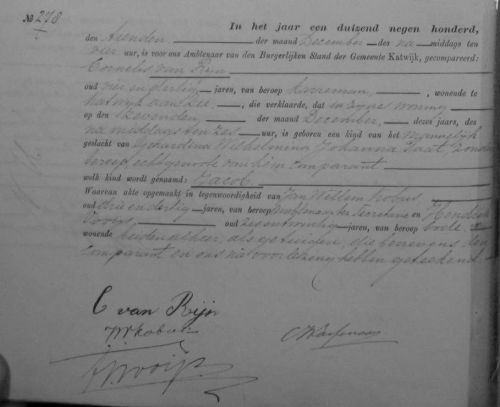 No 278
In het jaar een duizend negen honderd,
den tienden der maand December des na middags ten
vier uur, is voor ons Ambtenaar van den Burgerlijken Stand der Gemeente Katwijk, gecompareerd:
Cornelis van Rijn
oud vier en dertig jaren, van beroep wonende te
Katwijk aan Zee, die verklaarde, dat in zijne woning
op den zevenden der maand December dezes jaars, des
na middags ten zes uur, is geboren een kind van het mannelijk
geslacht van Gerhardina Wilhelmina Johanna zonder
beroep, echtgenoote van hem comparant
welk kind wordt genaamd: Jacob
Waarvan akte opgemaakt in tegenwoordigheid van Jan Willem
oud drie en dertig jaren, van beroep secretarie en Hendrik
oud zes en twintig jaren, van beroep bode
wonende beiden alhier, als getuigen, die benevens den
comparant en ons na voorlezing hebben geteekend
C van Rijn